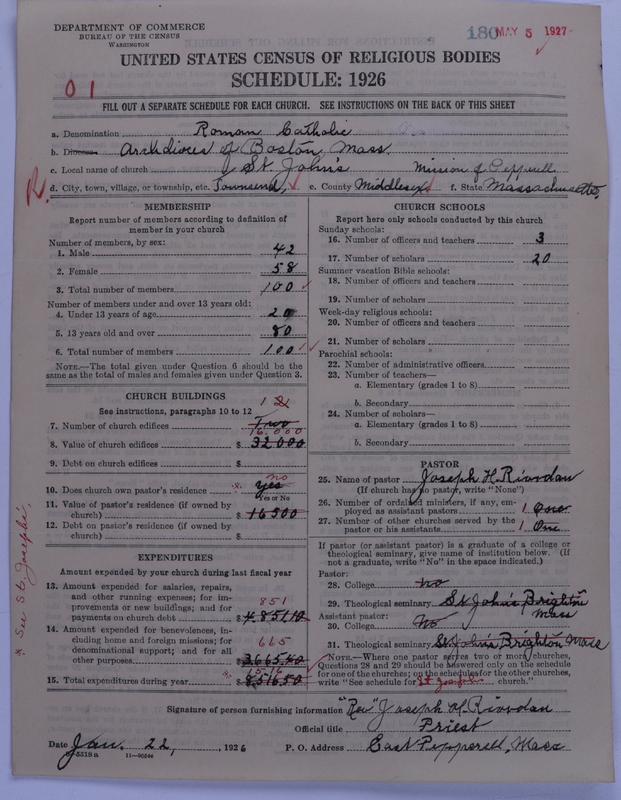 DEPARTMENT OF COMMERCE
BUREAU OF THE CENSUS
WASHINGTON
180 MAY 5 1927
UNITED STATES CENSUS OF RELIGIOUS BODIES
SCHEDULE: 1926
0 1
FILL OUT A SEPARATE SCHEDULE FOR EACH CHURCH. SEE INSTRUCTIONS ON THE BACK OF THIS SHEET
a. Denomination Roman Catholic
b. Diocese Archdioces of Boston, Mass.
c. Local name of church St. John's Mission of Pepperell
R. d. City, town, village, or township, etc. Townsend, e. County Middlesex f. State Massachusetts,
MEMBERSHIP
Report number of members according to definition of
member in your church
Number of members, by sex:
1. Male 42
2. Female 58
3. Total number of members 100
Number of members under and over 13 years old:
4. Under 13 years of age 20
5. 13 years old and over 80
6. Total number of members 100
NOTE.—The total given under Question 6 should be the
same as the total of males and females given under Question 3.
CHURCH BUILDINGS
See instructions, paragraphs 10 to 12
1 2
7. Number of church edifices Two
16.000
8. Value of church edifices $ 32000
9. Debt on church edifices $
no
10. Does church own pastor's residence * yes
Yes or No
11. Value of pastor's residence (if owned by
church) $ 16500
12. Debt on pastor's residence (if owned by
church) $
EXPENDITURES
Amount expended by your church during last fiscal year
13. Amount expended for salaries, repairs,
and other running expenses; for im-
provements or new buildings; and for
payments on church debt $ 851
14. Amount expended for benevolences, in-
cluding home and foreign missions; for
denominational support; and for all
other purposes 665
15. Total expenditures during year $
* See St. Joseph's.
CHURCH SCHOOLS
Report here only schools conducted by this church
Sunday schools:
16. Number of officers and teachers 3
17. Number of scholars 20
Summer vacation Bible schools:
18. Number of officers and teachers
19. Number of scholars
Week-day religious schools:
20. Number of officers and teachers
21. Number of scholars
Parochial schools:
22. Number of administrative officers
23. Number of teachers—
a. Elementary (grades 1 to 8)
b. Secondary
24. Number of scholars—
a. Elementary (grades 1 to 8)
b. Secondary
PASTOR
25. Name of pastor Joseph H. Riordan
(If church has no pastor, write "None")
26. Number of ordained ministers, if any, em-
ployed as assistant pastors 1 One
27. Number of other churches served by the
pastor or his assistants 1 One
If pastor (or assistant pastor) is a graduate of a college or
theological seminary, give name of institution below. (If
not a graduate, write "No" in the space indicated.)
Pastor:
28. College no
29. Theological seminary St John's Brighton
Mass
Assistant pastor:
30. College No
31. Theological seminary St. John's, Brighton Mass
NOTE.—Where one pastor serves two or more churches,
Questions 28 and 29 should be answered only on the schedule
for one of the churches; on the schedules for the other churches,
write "See schedule for St Joseph's church."
Signature of person furnishing information "Rev" Joseph H. Riordan
Official title Priest
Date Jan. 22, 1926 P. O. Address East Pepperell, Mass
11—90544